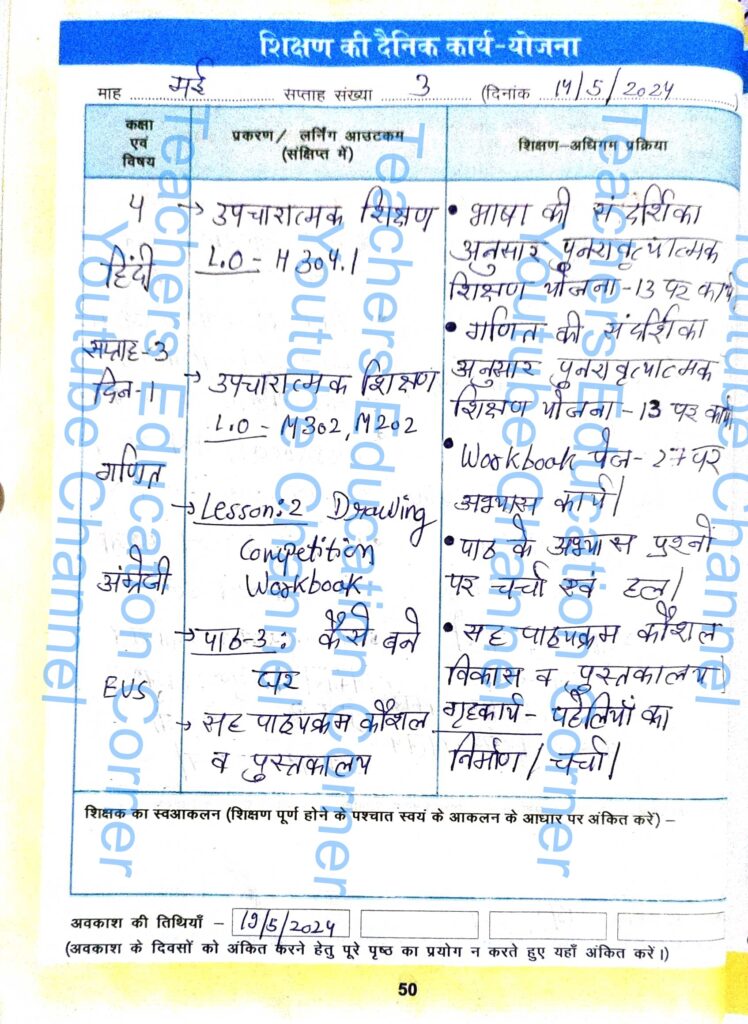 शिक्षण की दैनिक कार्य-योजना
माह मई सप्ताह संख्या 3 (दिनांक 14/5/2024
कक्षा एवं विषय
प्रकरण/ लर्निंग आउटकम (संक्षिप्त में)
शिक्षण-अधिगम प्रक्रिया
4
हिंदी
सप्ताह-3
दिन-1
गणित
अंग्रेजी
EVS
→ उपचारात्मक शिक्षण
L.O - H304.1
→ उपचारात्मक शिक्षण
L.O - M302, M202
→ Lesson:2 Drawing
Competition
Workbook
→ पाठ-3: कैसे बने
घर
→ सह पाठ्यक्रम कौशल
व पुस्तकालय
• भाषा की संदर्शिका
अनुसार पुनरावृत्यात्मक
शिक्षण योजना-13 पर कार्य
• गणित की संदर्शिका
अनुसार पुनरावृत्यात्मक
शिक्षण योजना-13 पर कार्य
• Workbook पेज-27 पर
अभ्यास कार्य।
• पाठ के अभ्यास प्रश्नों
पर चर्चा एवं हल।
• सह पाठ्यक्रम कौशल
विकास व पुस्तकालय
गृहकार्य- पहेलियों का
निर्माण/चर्चा।
शिक्षक का स्वआकलन (शिक्षण पूर्ण होने के पश्चात स्वयं के आकलन के आधार पर अंकित करें) –
अवकाश की तिथियाँ – 19/5/2024
(अवकाश के दिवसों को अंकित करने हेतु पूरे पृष्ठ का प्रयोग न करते हुए यहाँ अंकित करें।)
50
Teachers Education Corner
Youtube Channel
Teachers Education Corner
Youtube Channel
Teachers Education Corner
Youtube Channel